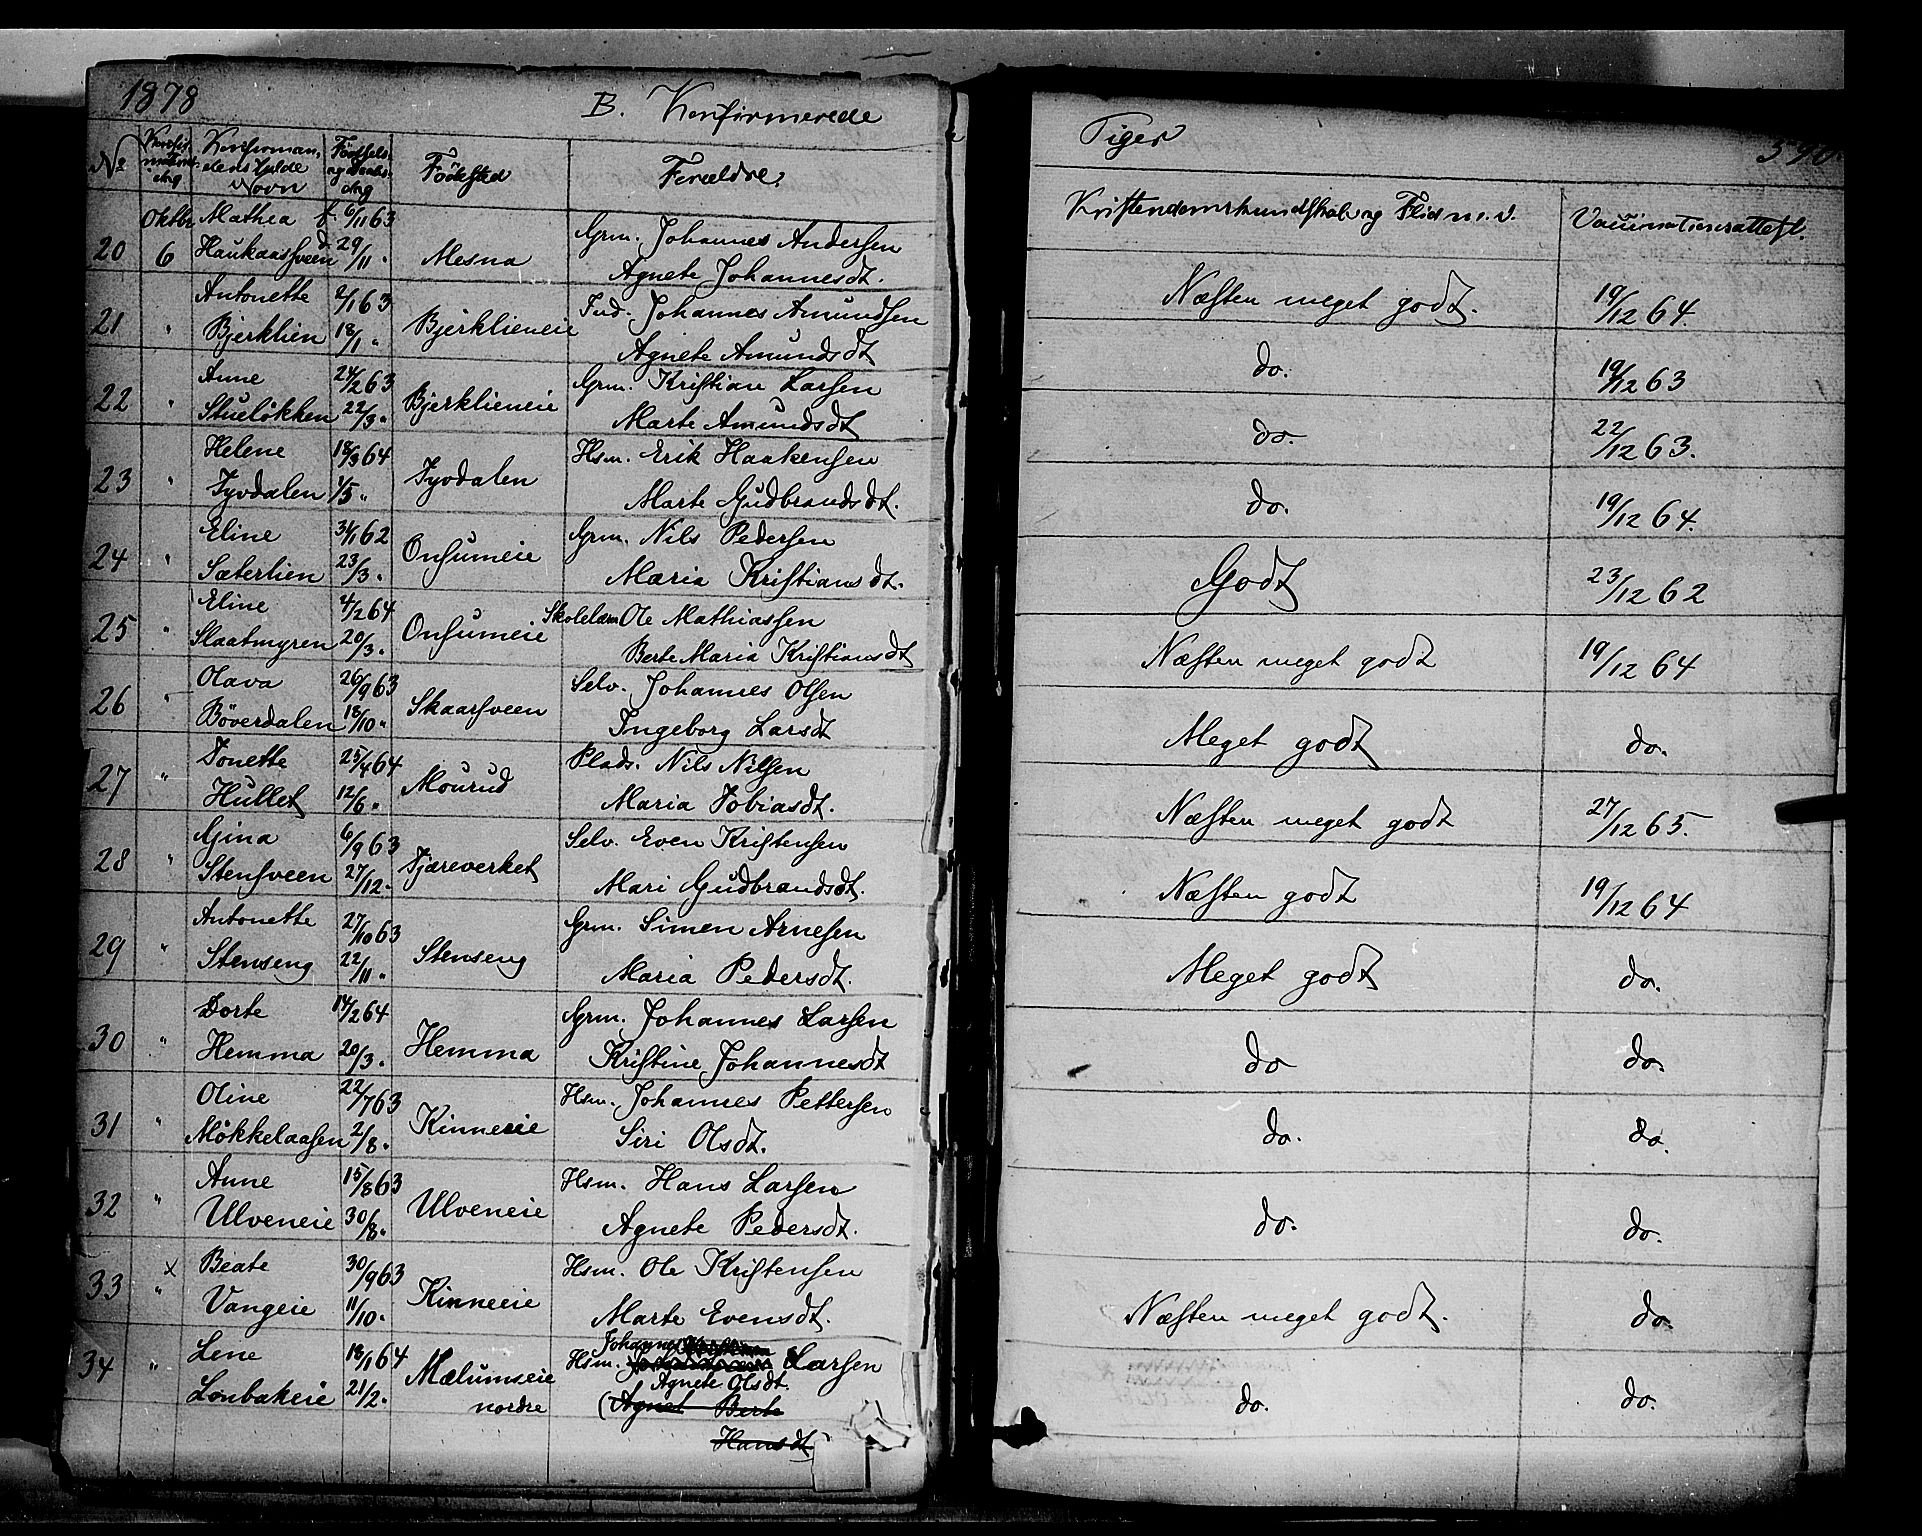 1878
B. Konfirmerede
Piger
390.
No
Konfir-mations-dag
Konfirman-dens fulde Navn
Fødsels- og Daabs-dag
Fødested
Forældre.
Kristendomskundskab og Flid m. v.
Vaccinationsattest.
20 Oktbr 6 Mathea Haukaassveen f. 6/11 63 d. 29/11 „ Mesna Grm. Johannes Andersen
Agnete Johannesdt. Næsten meget godt. 19/12 64.
21 „ Antonette Bjerklien 2/1 63 18/1 „ Bjerklieneie Ind. Johannes Amundsen
Agnete Amundsdt do. 19/12 63
22 „ Anne Stueløkken 24/2 63 22/3 „ Bjerklieneie Grm. Kristian Larsen
Marte Amundsdt do. 22/12 63.
23 „ Helene Tyvdalen 18/3 64 1/5 „ Tyvdalen Hsm. Erik Haakensen
Marte Gudbrandsdt. do. 19/12 64.
24 „ Eline Sæterlien 31/1 62 23/3 „ Onsumeie Grm. Nils Pedersen
Maria Kristiansdt. Godt 23/12 62
25 „ Eline Slaatmyren 4/2 64 20/3 „ Onsumeie Skolelær. Ole Mathiassen
Berte Maria Kristiansdt Næsten meget godt 19/12 64
26 „ Olava Bøverdalen 26/9 63 18/10 „ Skaarsveen Selv. Johannes Olsen
Ingeborg Larsdt Meget godt do.
27 „ Tonette Hullet 25/4 64 12/6 „ Mourud Plads. Nils Nilsen
Maria Tobiasdt. Næsten meget godt 27/12 65.
28 „ Gina Stensveen 6/9 63 27/12 „ Tjæreverket Selv. Even Kristensen
Mari Gudbrandsdt. Næsten godt 19/12 64
29 „ Antonette Stenseng 27/10 63 22/11 „ Stenseng Grm. Simen Arnesen
Maria Pedersdt. Meget godt do.
30 „ Dorte Hemma 14/2 64 20/3 „ Hemma Grm. Johannes Larsen
Kristine Johannesdt do do.
31 „ Oline Møkkelaasen 22/7 63 2/8 „ Kinneeie Hsm. Johannes Pettersen
Siri Olsdt. do. do.
32 „ Anne Ulveneie 15/8 63 30/8 „ Ulveneie Hsm. Hans Larsen
Agnete Pedersdt. do. do.
33 x „ Beate Vangeie 30/9 63 11/10 „ Kinneeie Hsm. Ole Kristensen
Marte Evensdt. Næsten meget godt. do.
34 „ Lene Lonbakeie 18/1 64 21/2 „ Mælumseie nordre Hsm. Johannes Larsen
Agnete Olsdt.
(Agnet Berte
Hansdt do. do.